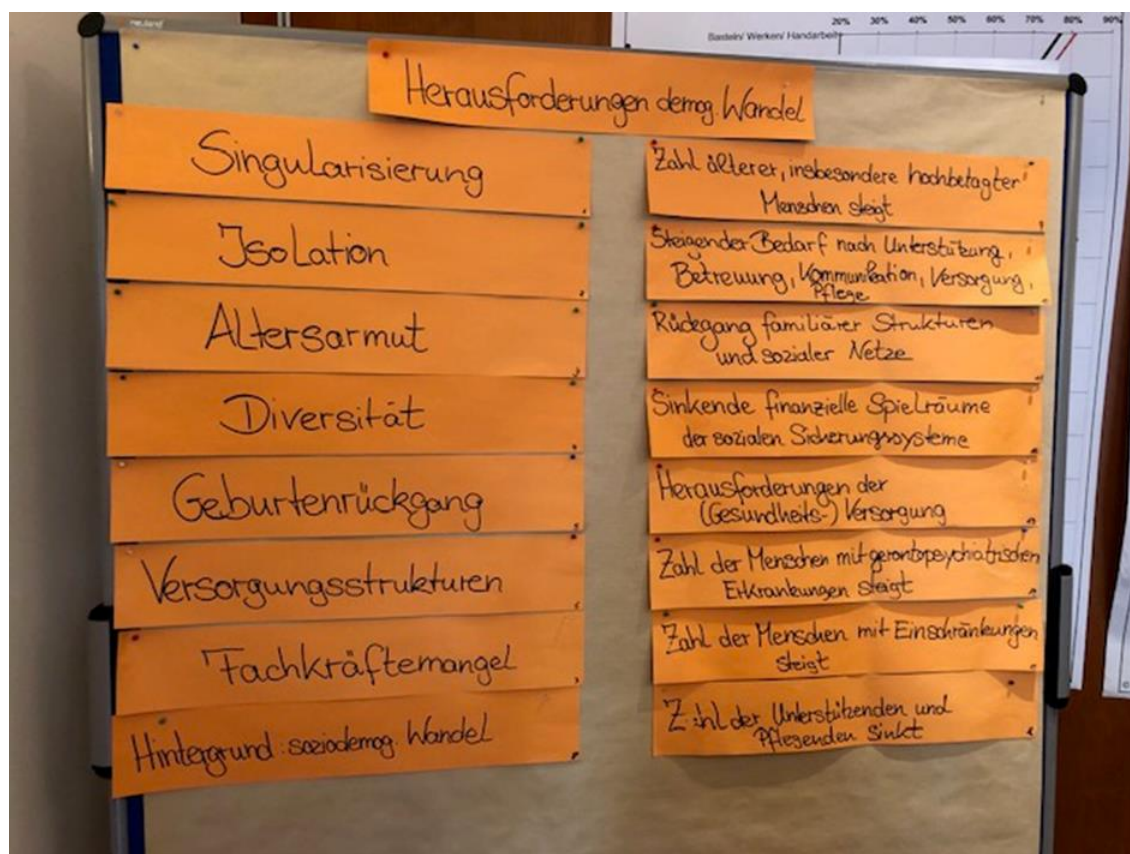 neuland
20% 30% 40% 50% 60% 70% 80% 90%
Basteln/ Werken/ Handarbeit
Herausforderungen demog. Wandel
Singularisierung
Isolation
Altersarmut
Diversität
Geburtenrückgang
Versorgungsstrukturen
Fachkräftemangel
Hintergrund soziodemog. Wandel
Zahl älterer, insbesondere hochbetagter
Menschen steigt
Steigender Bedarf nach Unterstützung,
Betreuung, Kommunikation, Versorgung,
Pflege
Rückgang familiärer Strukturen
und sozialer Netze
Sinkende finanzielle Spielräume
der sozialen Sicherungssysteme
Herausforderungen der
(Gesundheits-) Versorgung
Zahl der Menschen mit gerontopsychiatrischen
Erkrankungen steigt
Zahl der Menschen mit Einschränkungen
steigt
Zahl der Unterstützenden und
Pflegenden sinkt